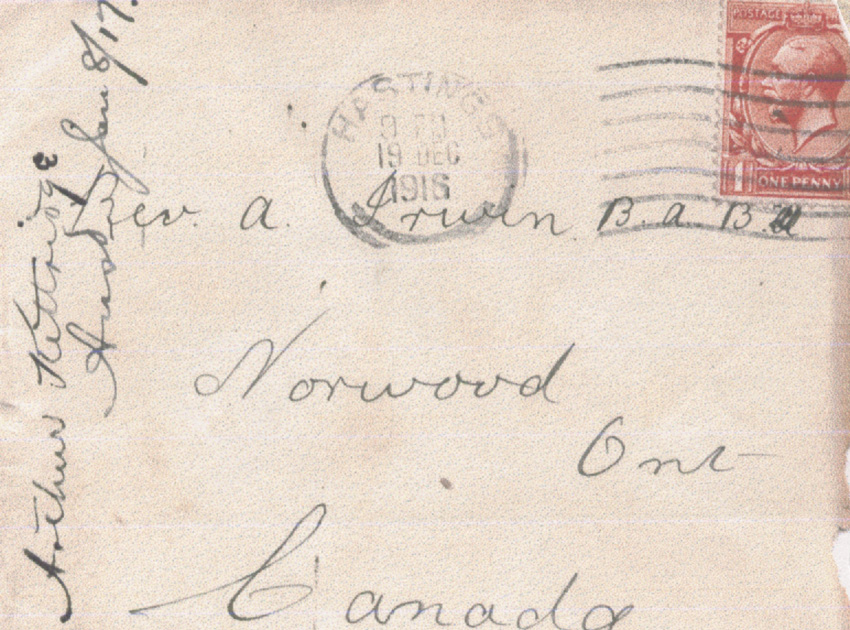 POSTAGE
1 ONE PENNY
HASTINGS
19 DEC
1916
Rev. A. Irwin B.A. B.D
Norwood
Ont
Canada
Arthur Kettridge
Jan 8/17.